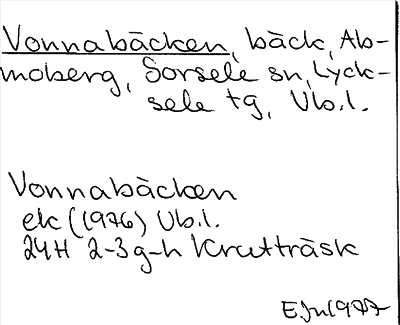 Vonnabäcken, bäck, Ab-
moberg, Sorsele sn, Lyck-
sele tg, Vb.l.
Vonnabäcken
ek (1976) Vb.l.
24H 2-3 g-h Krutträsk
EJn 1977